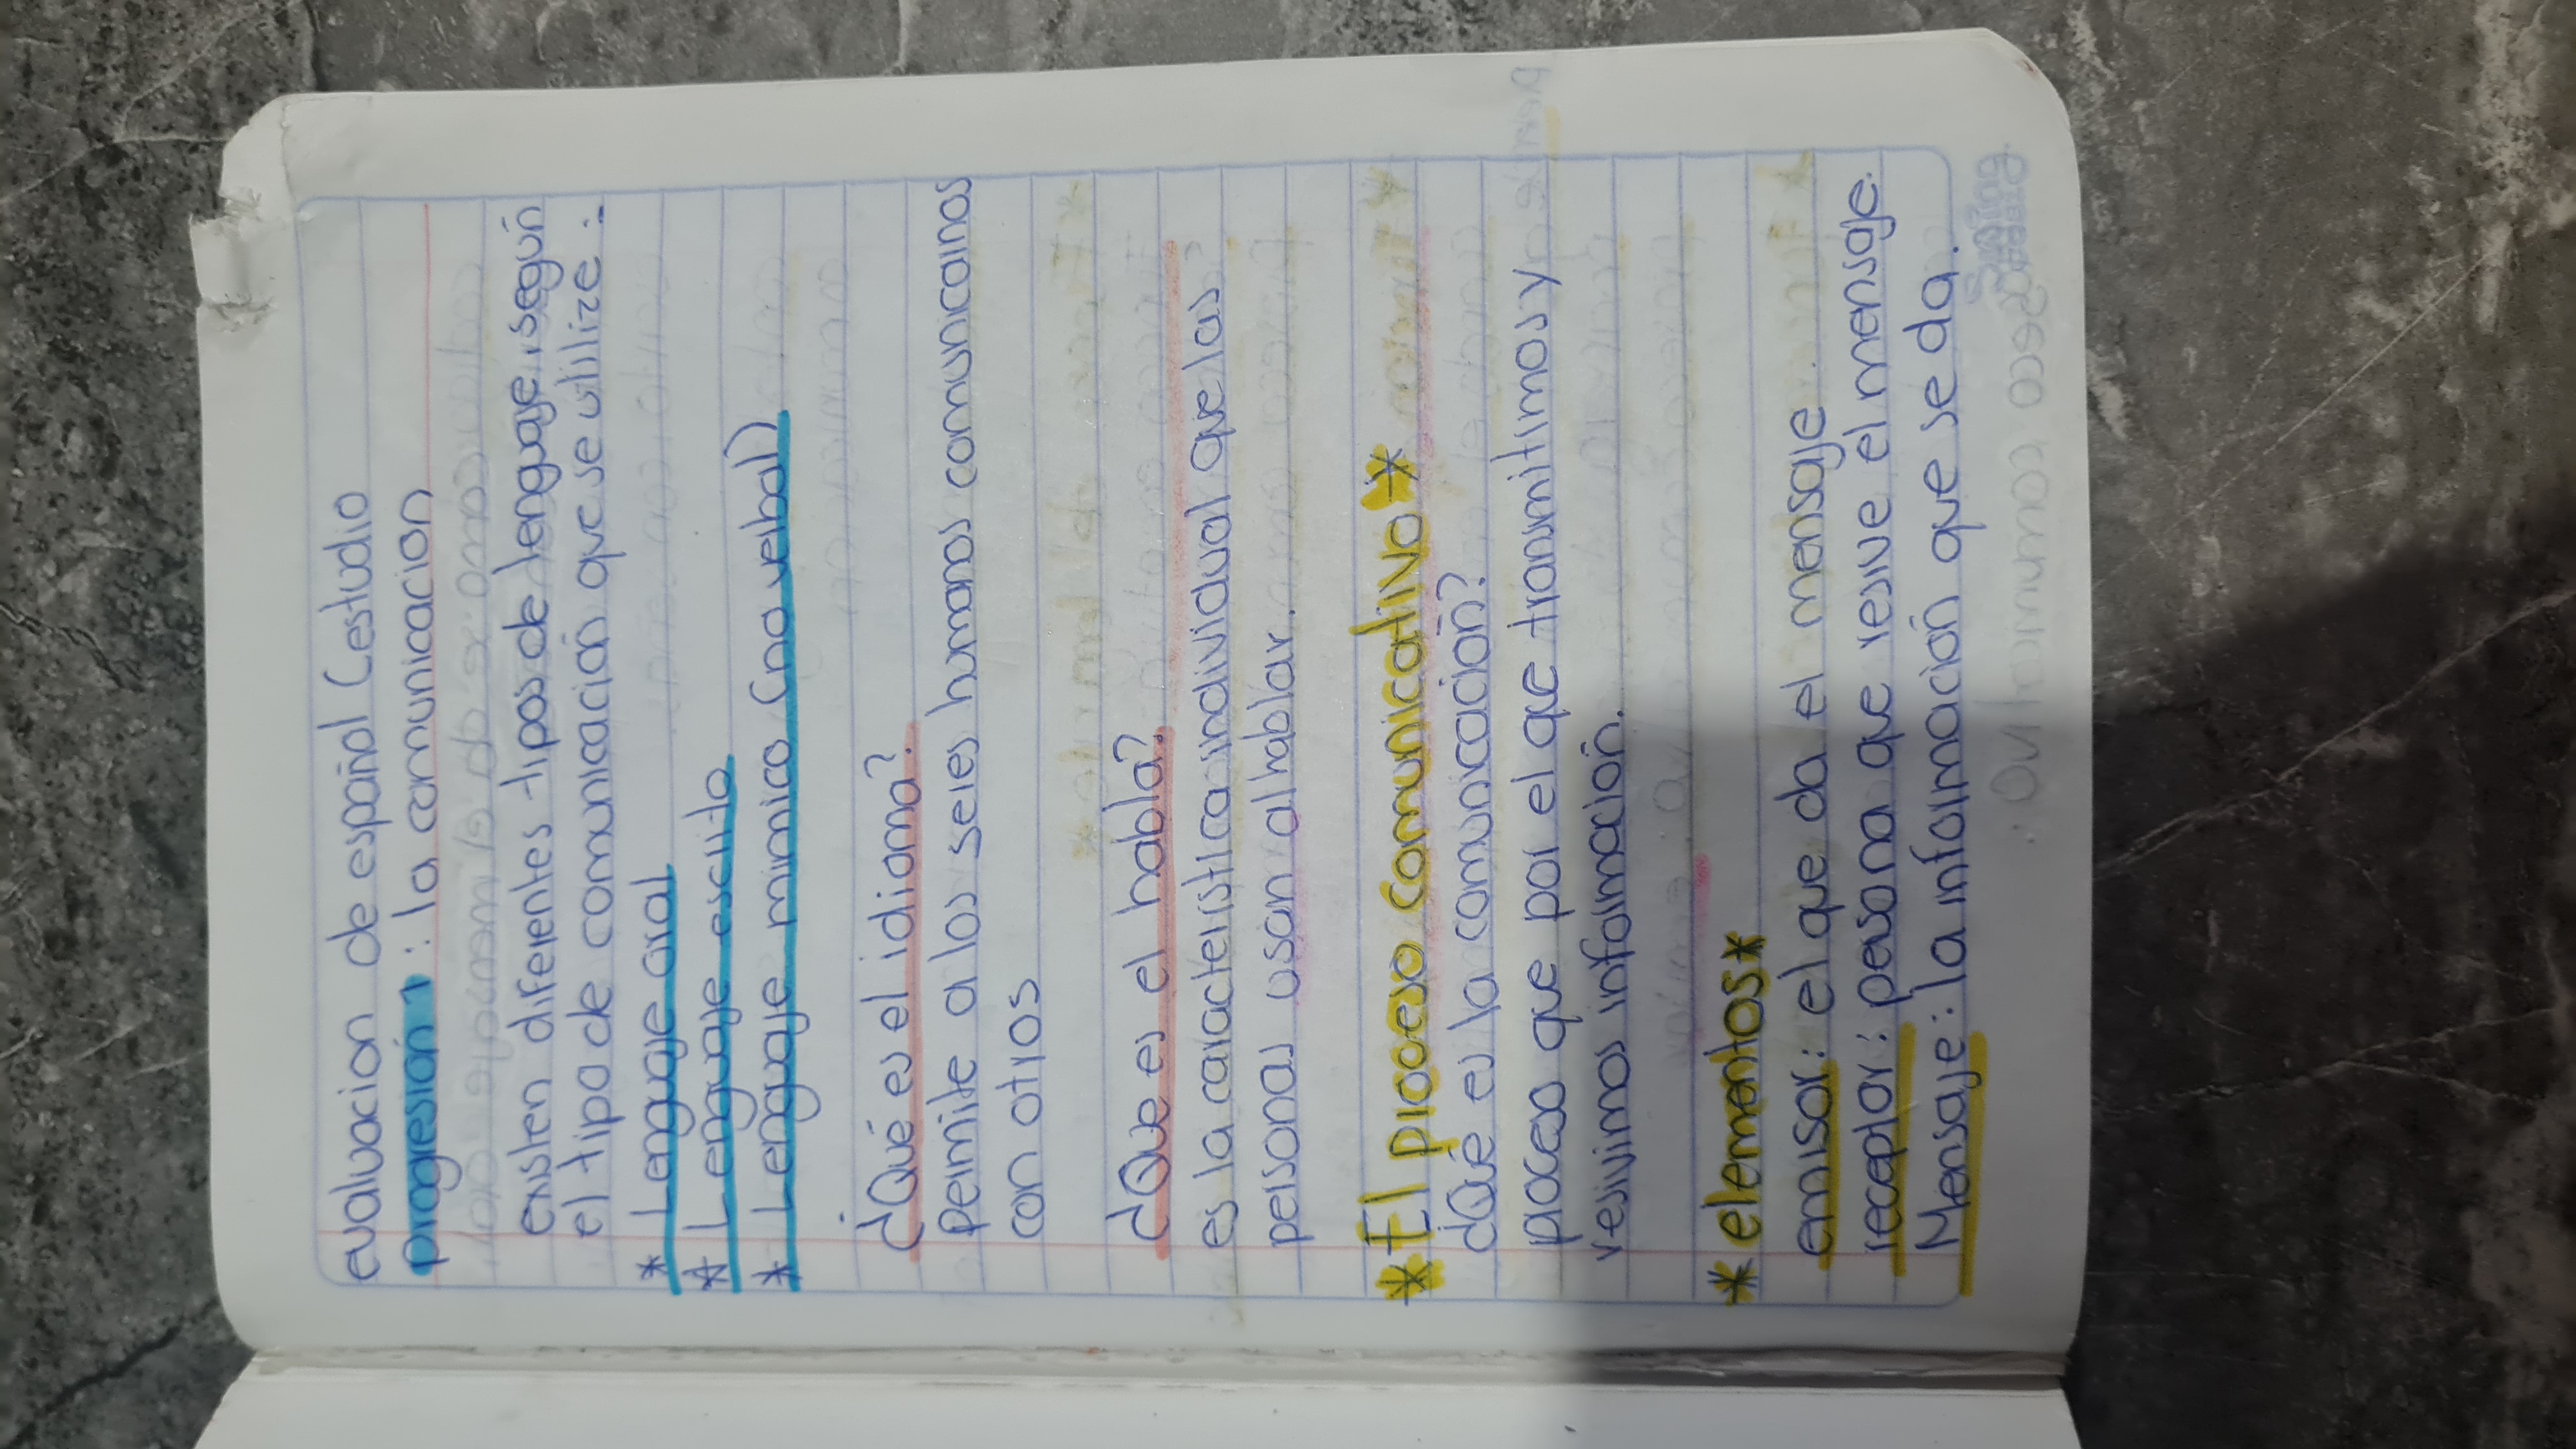 evaluacion de español (estudio
progresión 1 : la comunicacion
existen diferentes tipos de lenguaje, según
el tipo de comunicación que se utilize :
* Lenguaje oral
* Lenguaje escrito
* Lenguaje mimico (no verbal)
¿Qué es el idioma?
permite a los seres humanos comunicarnos
con otros
¿Que es el habla?
es la característica individual que las
personas usan al hablar.
*El proceso comunicativo*
¿Qué es la comunicación?
proceso que por el que transmitimos y
resivimos información.
* elementos*
emisor: el que da el mensaje
receptor: persona que resive el mensaje.
Mensaje: la información que se da.